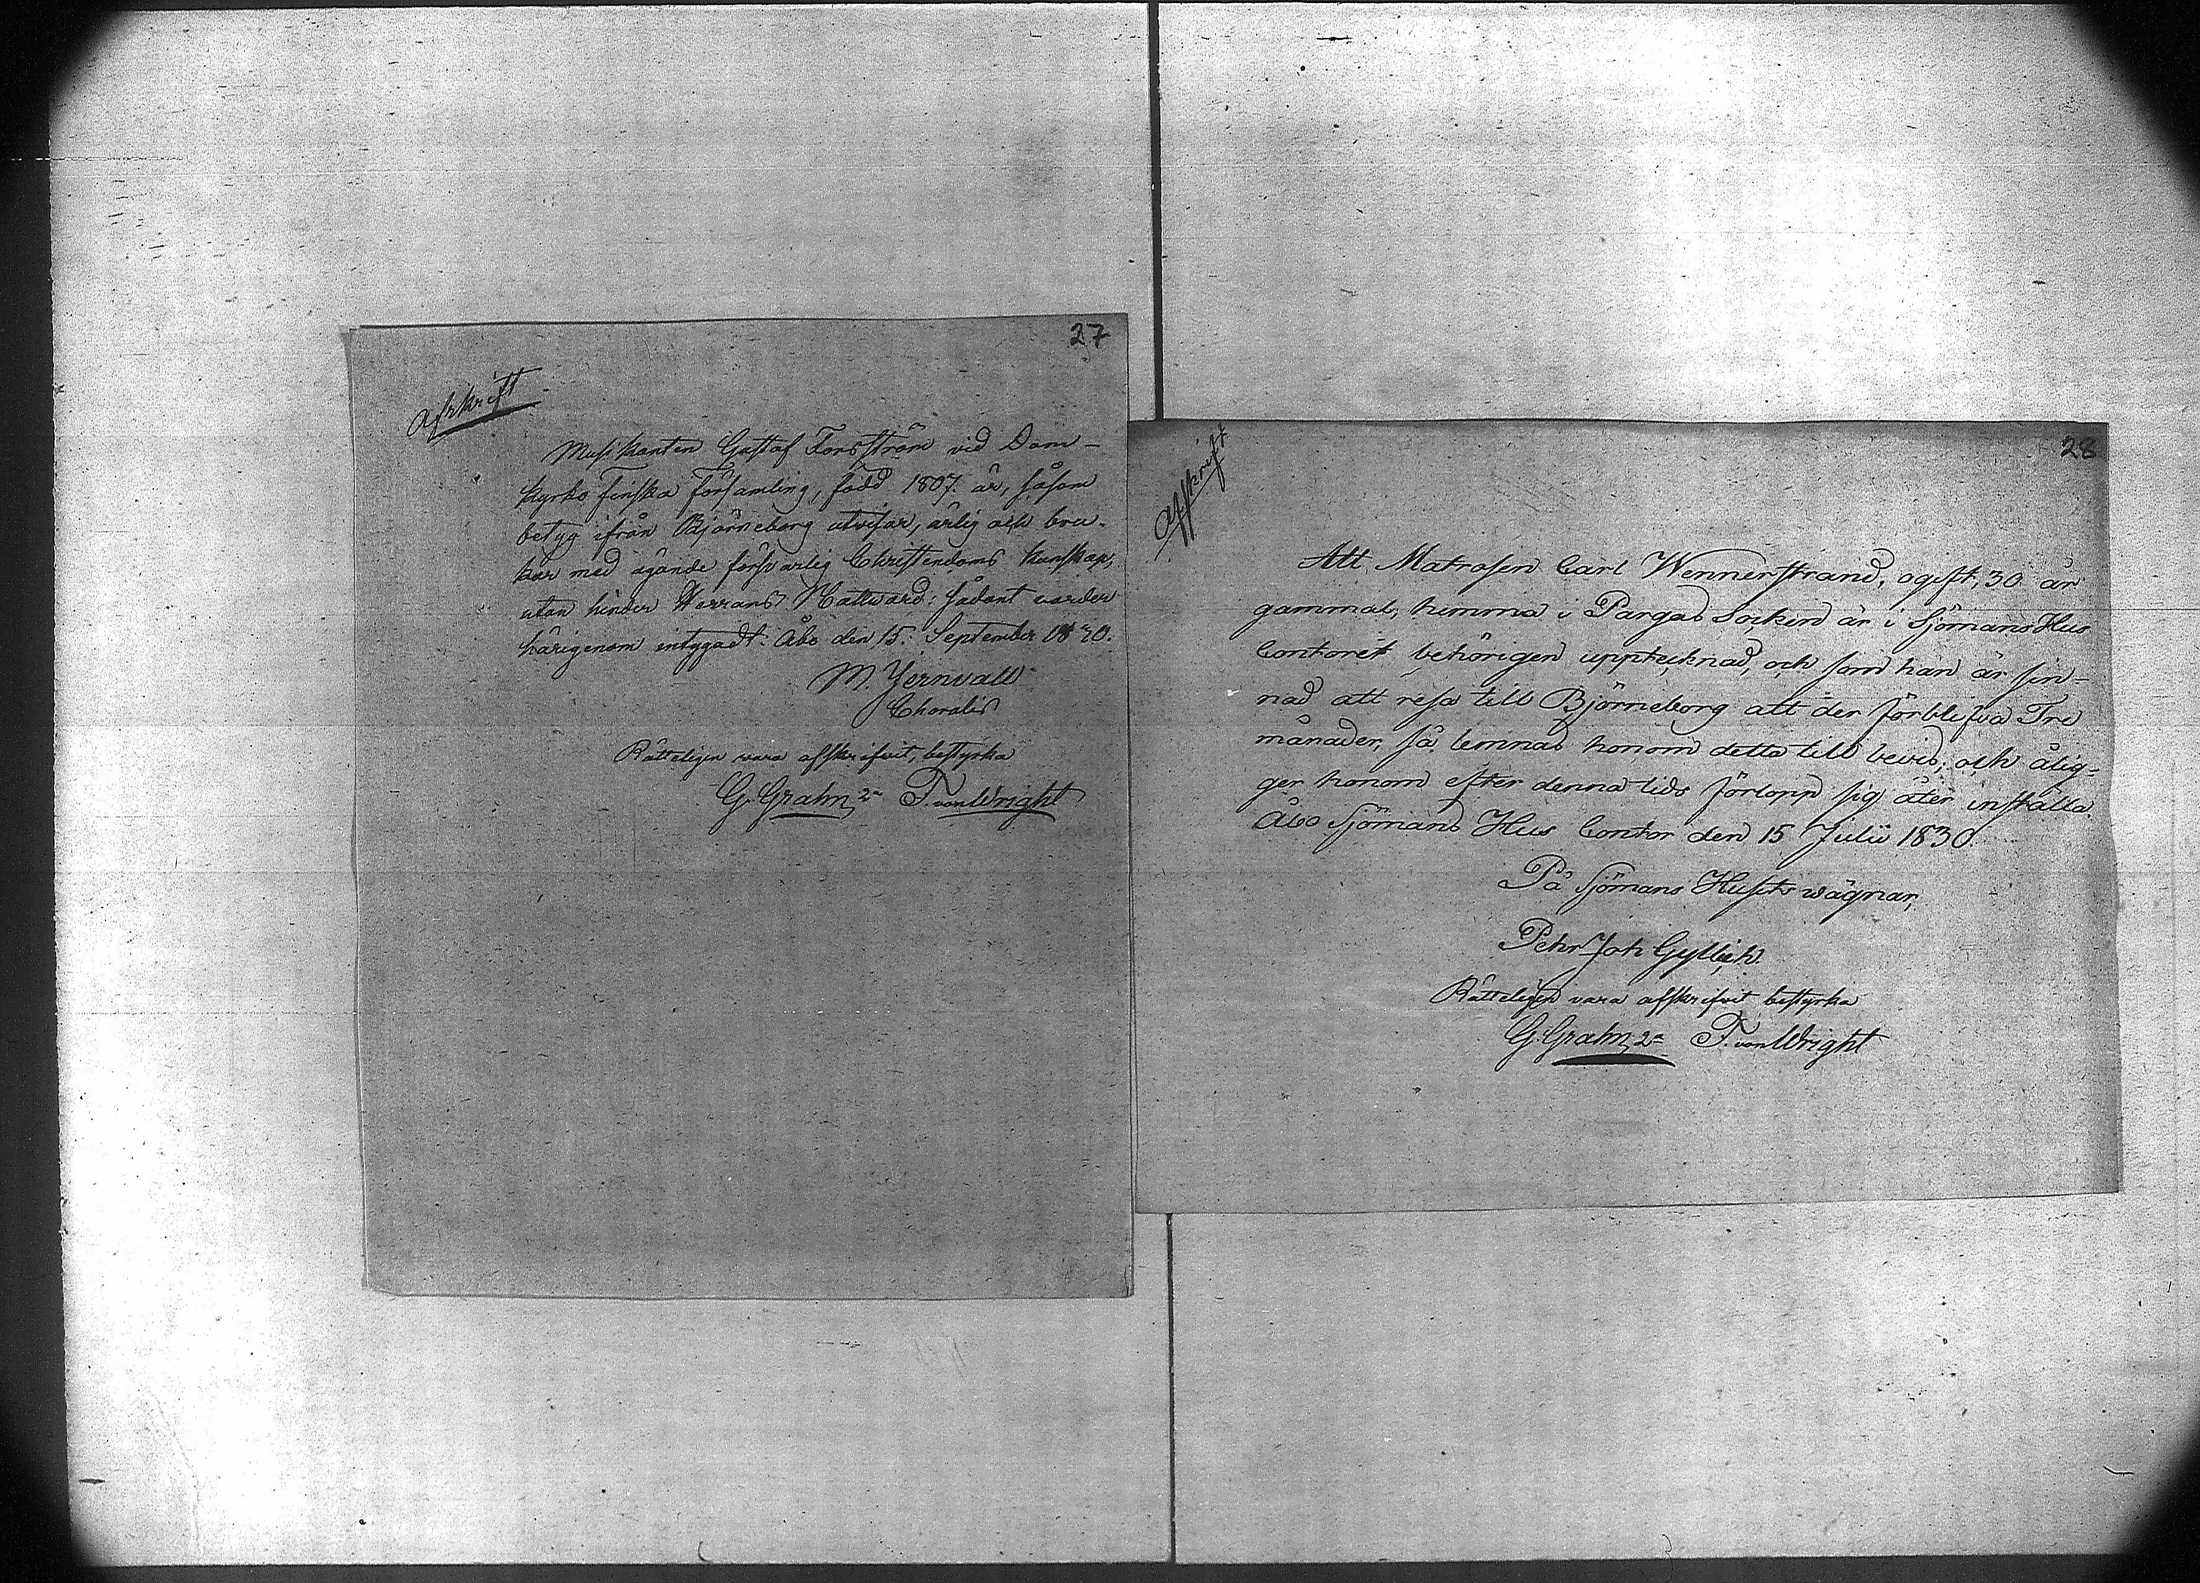 27
Afskrift
Musikanten Gustaf Forsström vid Dom-
kyrko Finska församling, född 1807. år, såsom
betyg ifrån Björneborg utvisar, ärlig och bru-
kar med ägande försvarlig Christendoms kunskap,
utan hinder Herrans Nattward: sådant warder
härigenom intygadt. Åbo den 15. September 1830.
M. Jernvall
Choralis
Rätteligen vara afskrifvit, bestyrka
G. Grahn T. von Wright
28
Afskrift
Att Matrosen Carl Wennerstrand, ogift, 30 år
gammal, hemma i Pargas Sockin är i Sjömans Hus
Contoret behörigen upptecknad, och som han är sin-
nad att resa till Björneborg att der förblifva Tre
månader, så lemnas honom detta till bevis; och ålig-
ger honom efter denna tids förlopp sig åter inställa.
Åbo Sjömans Hus Contor den 15 Julii 1830.
På Sjömans Husets wägnar,
Pehr Joh Gyllich.
Rätteligen vara afskrifvit bestyrka
G. Grahn T. von Wright